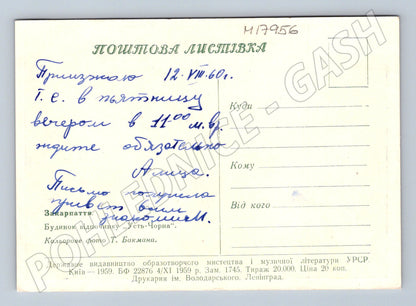 М17956
ПОШТОВА ЛИСТІВКА
Приезжаю 12.VIII 60г.
т.е. в пятницу
вечером в 11⁰⁰ м.вр.
ждите обязательно
Алица.
Письмо получила
привет всем
знакомым.
Закарпаття
Будинок відпочинку "Усть-Чорна".
Кольорове фото Г. Бакмина.
Куди
Кому
Від кого
Державне видавництво образотворчого мистецтва і музичної літератури УРСР.
Київ — 1959. БФ 22876 4/XI 1959 р. Зам. 1745. Тираж 20.000. Ціна 20 коп.
Друкарня ім. Володарського. Ленінград.
POHLEDNICE - GASH